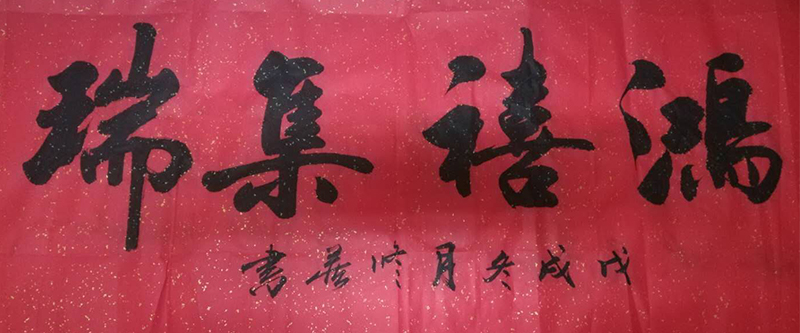 鴻禧集瑞
戊戌冬月修善書